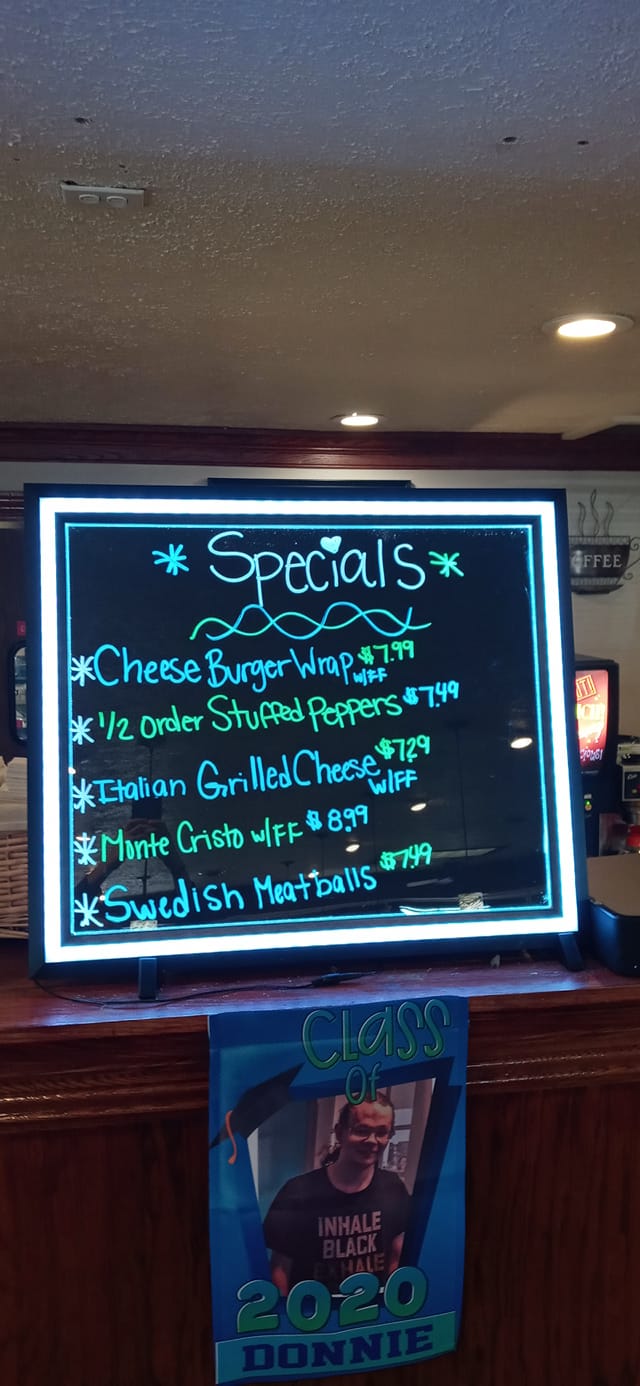 Specials
*Cheese Burger Wrap $7.99
w/FF
*1/2 order Stuffed Peppers $7.49
*Italian Grilled Cheese $7.29
w/FF
*Monte Cristo w/FF $8.99
*Swedish Meatballs $7.49
FFEE
CLASS
Of
INHALE
BLACK
EXHALE
2020
DONNIE